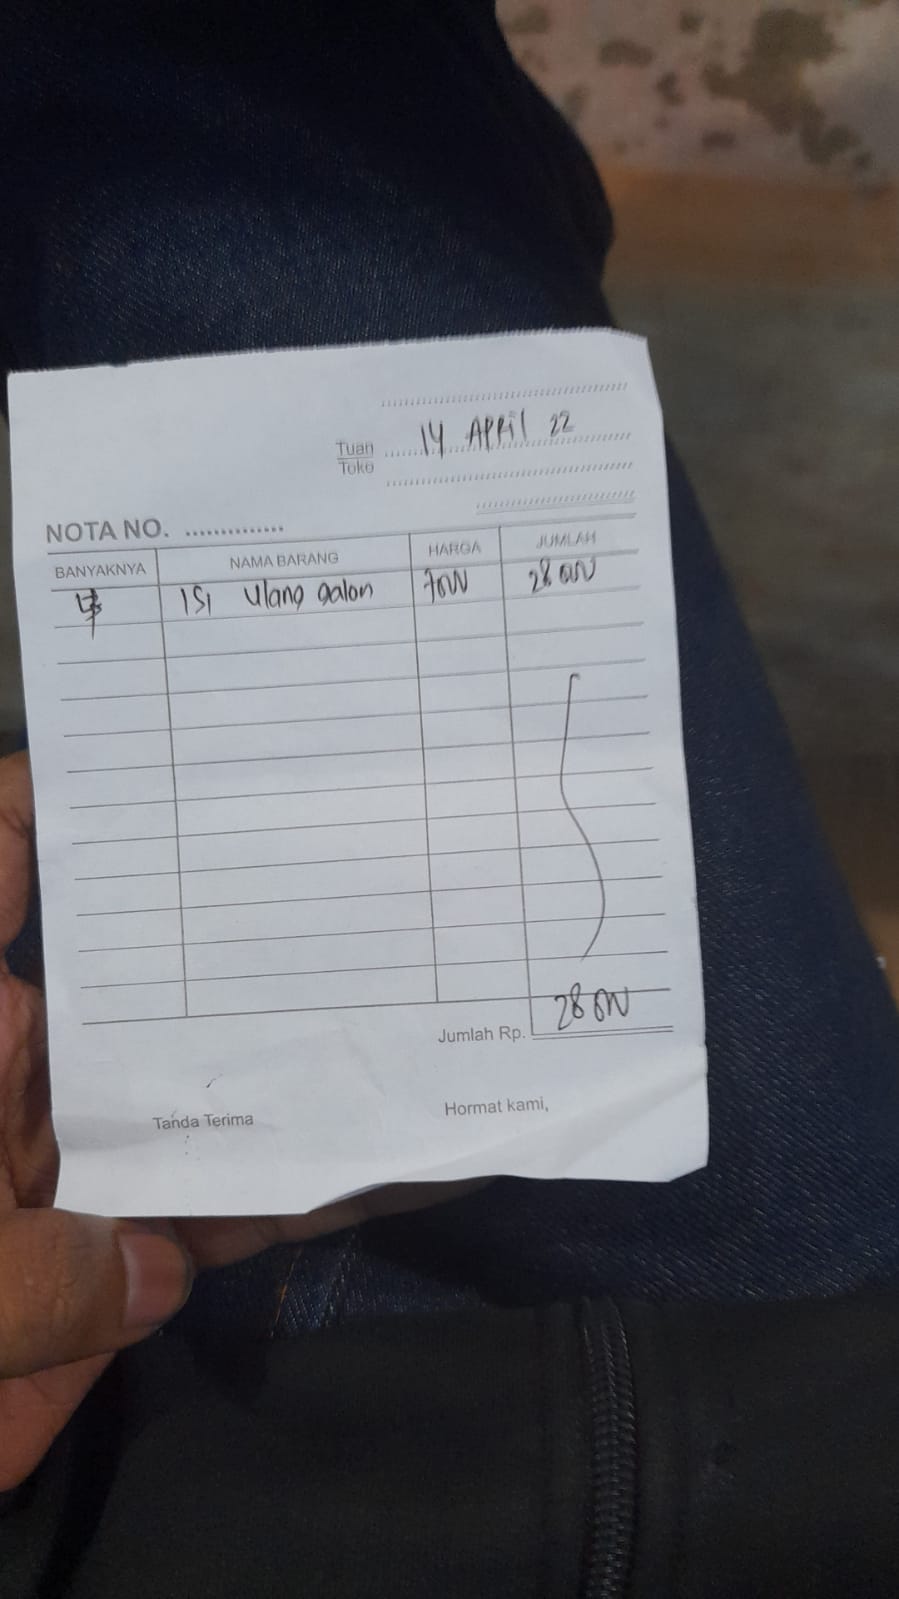 14 APRil 22
Tuan
Toko
NOTA NO. ..............
BANYAKNYA NAMA BARANG HARGA JUMLAH
4 ISI Ulang galon 7000 28000
28000
Jumlah Rp.
Tanda Terima Hormat kami,